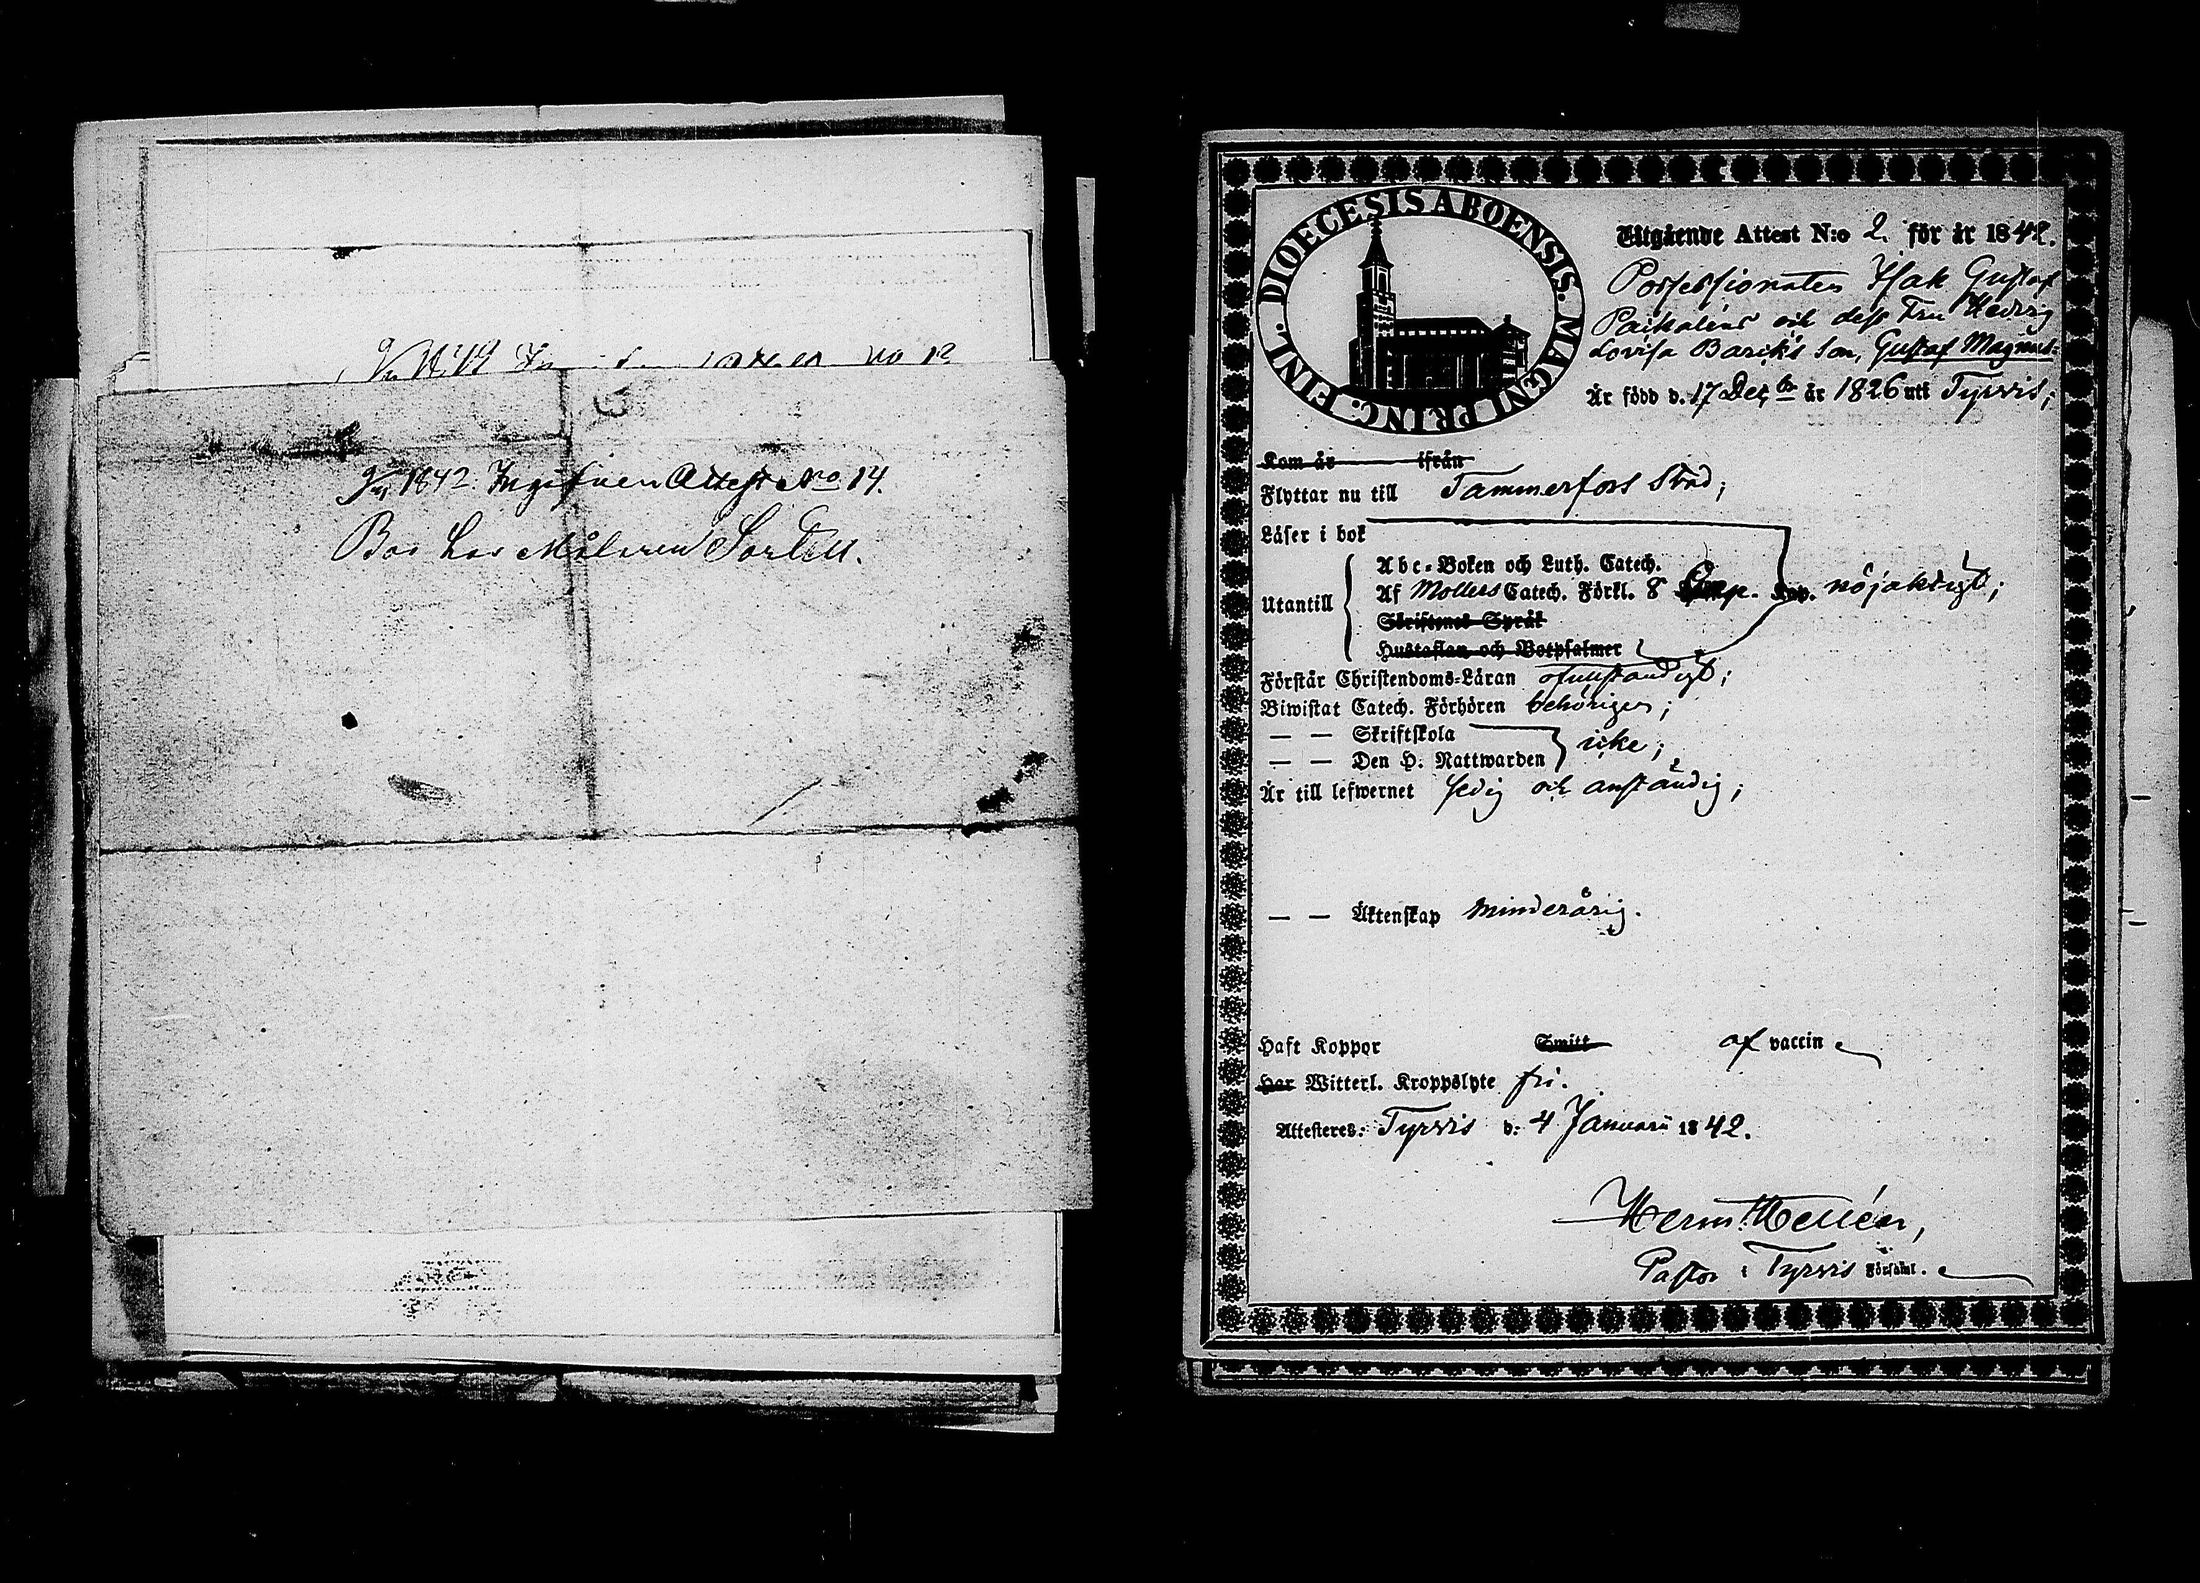 1842. Ingifven Attest No 14.
Bor hos Målaren
DIOECESIS ABOENSIS. MAGNI PRINC. FINL.
Utgående Attest N:o 2. för år 1842.
Possessionaten Isak Gustaf
Paikaléns och dess Fru Hedvig
Lovisa Bariks Son, Gustaf Magnus:
Är född d. 17 Decbr år 1826 uti Tyrvis;
Kom år ifrån
Flyttar nu till Tammerfors Stad;
Läser i bok
Abc-Boken och Luth. Catech.
Utantill Af Möllers Catech. Förkl. 8 Cap. nöjaktigt;
Skriftenes Språk
Hustaflan och Botpsalmer
Förstår Christendoms-Läran ofullständigt;
Biwistat Catech. Förhören behörigen;
— — Skriftskola
— — Den H. Nattwarden icke;
Är till lefwernet sedig och anständig;
— — Äktenskap minderårig.
Haft Koppor Smitt af vaccin
Har Witterl. Kroppslyte fri.
Attesteres: Tyrvis d. 4 Januari 1842.
Herm. Hellén,
Pastor i Tyrvis Församl.